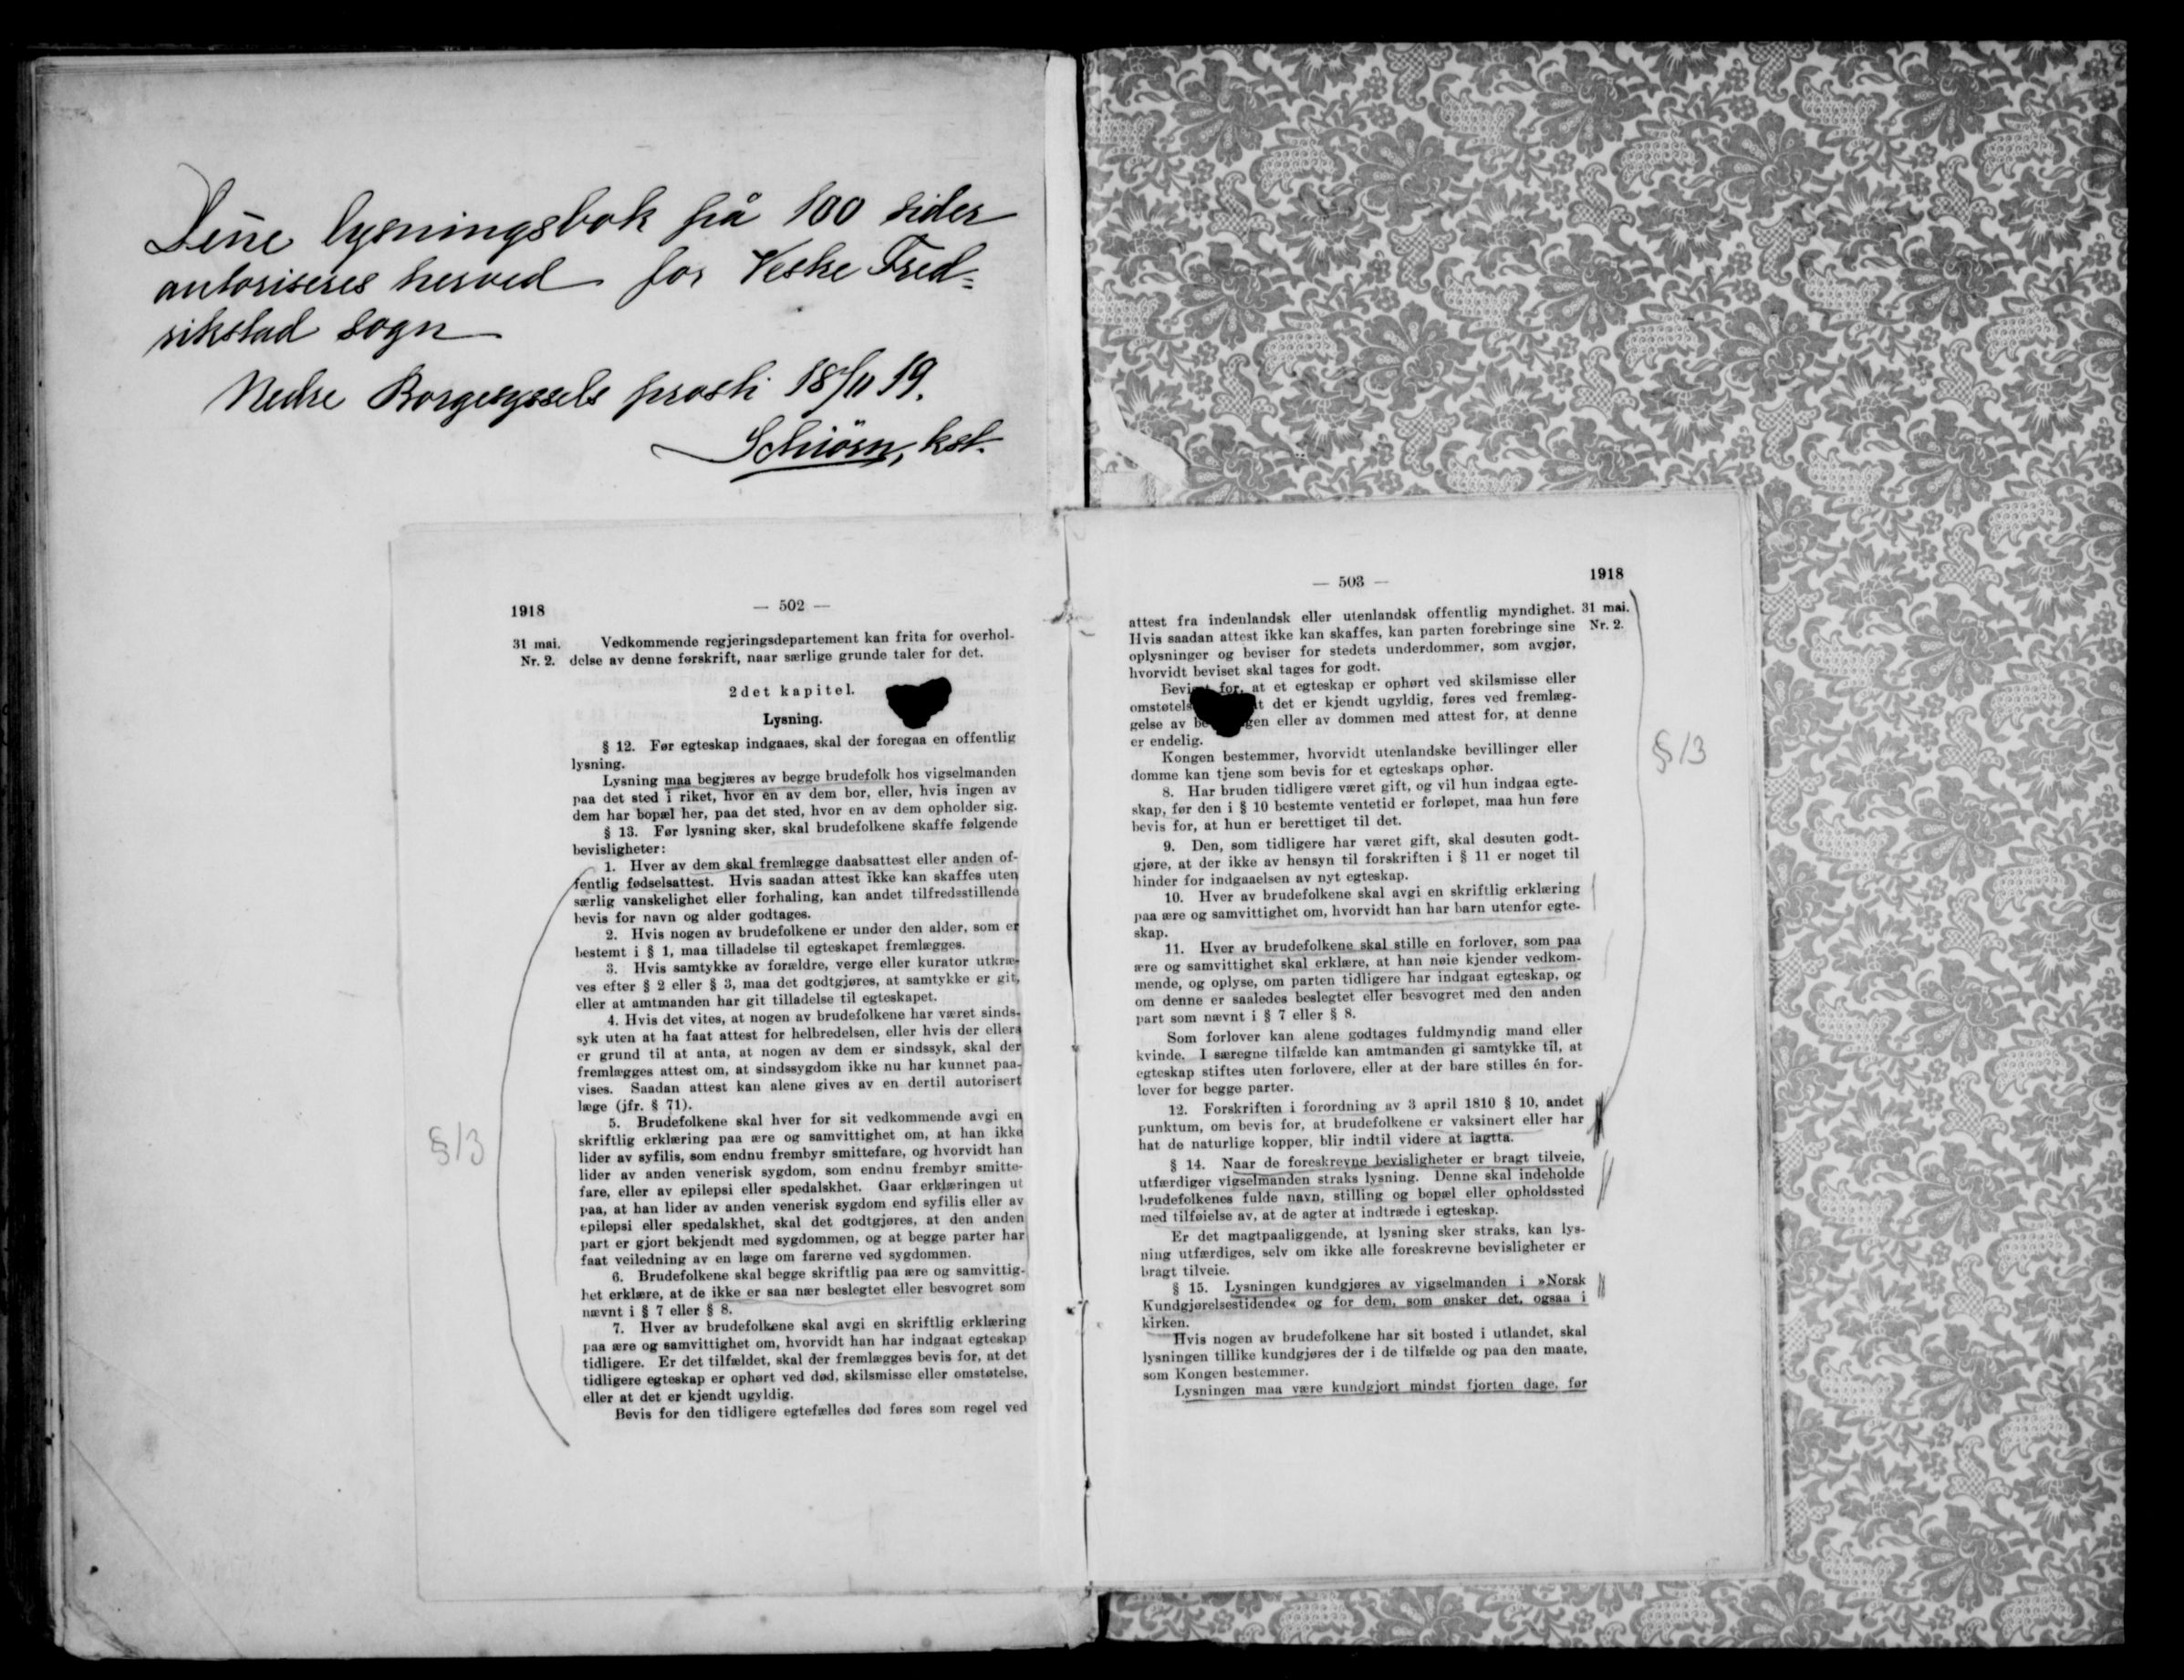 Denne lysningsbok på 100 sider
autoriseres herved for Vestre Fred=
rikstad sogn
Nedre Borgesyssels prosti 18/11 19.
Schiörn, kst.
1918
— 502 —
31 mai.
Nr. 2.
Vedkommende regjeringsdepartement kan frita for overhol-
delse av denne forskrift, naar særlige grunde taler for det.
2det kapitel.
Lysning.
§ 12. Før egteskap indgaaes, skal der foregaa en offentlig
lysning.
Lysning maa begjæres av begge brudefolk hos vigselmanden
paa det sted i riket, hvor en av dem bor, eller, hvis ingen av
dem har bopæl her, paa det sted, hvor en av dem opholder sig.
§ 13. Før lysning sker, skal brudefolkene skaffe følgende
bevisligheter:
1. Hver av dem skal fremlægge daabsattest eller anden of-
fentlig fødselsattest. Hvis saadan attest ikke kan skaffes uten
særlig vanskelighet eller forhaling, kan andet tilfredsstillende
bevis for navn og alder godtages.
2. Hvis nogen av brudefolkene er under den alder, som er
bestemt i § 1, maa tilladelse til egteskapet fremlægges.
3. Hvis samtykke av forældre, verge eller kurator utkræ-
ves efter § 2 eller § 3, maa det godtgjøres, at samtykke er git,
eller at amtmanden har git tilladelse til egteskapet.
4. Hvis det vites, at nogen av brudefolkene har været sinds-
syk uten at ha faat attest for helbredelsen, eller hvis der ellers
er grund til at anta, at nogen av dem er sindssyk, skal der
fremlægges attest om, at sindssygdom ikke nu har kunnet paa-
vises. Saadan attest kan alene gives av en dertil autorisert
læge (jfr. § 71).
5. Brudefolkene skal hver for sit vedkommende avgi en
skriftlig erklæring paa ære og samvittighet om, at han ikke
lider av syfilis, som endnu frembyr smittefare, og hvorvidt han
lider av anden venerisk sygdom, som endnu frembyr smitte-
fare, eller av epilepsi eller spedalskhet. Gaar erklæringen ut
paa, at han lider av anden venerisk sygdom end syfilis eller av
epilepsi eller spedalskhet, skal det godtgjøres, at den anden
part er gjort bekjendt med sygdommen, og at begge parter har
faat veiledning av en læge om farerne ved sygdommen.
6. Brudefolkene skal begge skriftlig paa ære og samvittig-
het erklære, at de ikke er saa nær beslegtet eller besvogret som
nævnt i § 7 eller § 8.
7. Hver av brudefolkene skal avgi en skriftlig erklæring
paa ære og samvittighet om, hvorvidt han har indgaat egteskap
tidligere. Er det tilfældet, skal der fremlægges bevis for, at det
tidligere egteskap er ophørt ved død, skilsmisse eller omstøtelse,
eller at det er kjendt ugyldig.
Bevis for den tidligere egtefælles død føres som regel ved
§ 13
— 503 —
1918
31 mai.
Nr. 2.
attest fra indenlandsk eller utenlandsk offentlig myndighet.
Hvis saadan attest ikke kan skaffes, kan parten forebringe sine
oplysninger og beviser for stedets underdommer, som avgjør,
hvorvidt beviset skal tages for godt.
Beviset for, at et egteskap er ophørt ved skilsmisse eller
omstøtels t det er kjendt ugyldig, føres ved fremlæg-
gelse av be gen eller av dommen med attest for, at denne
er endelig.
Kongen bestemmer, hvorvidt utenlandske bevillinger eller
domme kan tjene som bevis for et egteskaps ophør.
8. Har bruden tidligere været gift, og vil hun indgaa egte-
skap, før den i § 10 bestemte ventetid er forløpet, maa hun føre
bevis for, at hun er berettiget til det.
9. Den, som tidligere har været gift, skal desuten godt-
gjøre, at der ikke av hensyn til forskriften i § 11 er noget til
hinder for indgaaelsen av nyt egteskap.
10. Hver av brudefolkene skal avgi en skriftlig erklæring
paa ære og samvittighet om, hvorvidt han har barn utenfor egte-
skap.
11. Hver av brudefolkene skal stille en forlover, som paa
ære og samvittighet skal erklære, at han nøie kjender vedkom-
mende, og oplyse, om parten tidligere har indgaat egteskap, og
om denne er saaledes beslegtet eller besvogret med den anden
part som nævnt i § 7 eller § 8.
Som forlover kan alene godtages fuldmyndig mand eller
kvinde. I særegne tilfælde kan amtmanden gi samtykke til, at
egteskap stiftes uten forlovere, eller at der bare stilles én for-
lover for begge parter.
12. Forskriften i forordning av 3 april 1810 § 10, andet
punktum, om bevis for, at brudefolkene er vaksinert eller har
hat de naturlige kopper, blir indtil videre at iagtta.
§ 14. Naar de foreskrevne bevisligheter er bragt tilveie,
utfærdiger vigselmanden straks lysning. Denne skal indeholde
brudefolkenes fulde navn, stilling og bopæl eller opholdssted
med tilføielse av, at de agter at indtræde i egteskap.
Er det magtpaaliggende, at lysning sker straks, kan lys-
ning utfærdiges, selv om ikke alle foreskrevne bevisligheter er
bragt tilveie.
§ 15. Lysningen kundgjøres av vigselmanden i »Norsk
Kundgjørelsestidende« og for dem, som ønsker det, ogsaa i
kirken.
Hvis nogen av brudefolkene har sit bosted i utlandet, skal
lysningen tillike kundgjøres der i de tilfælde og paa den maate,
som Kongen bestemmer.
Lysningen maa være kundgjort mindst fjorten dage, før
§ 13